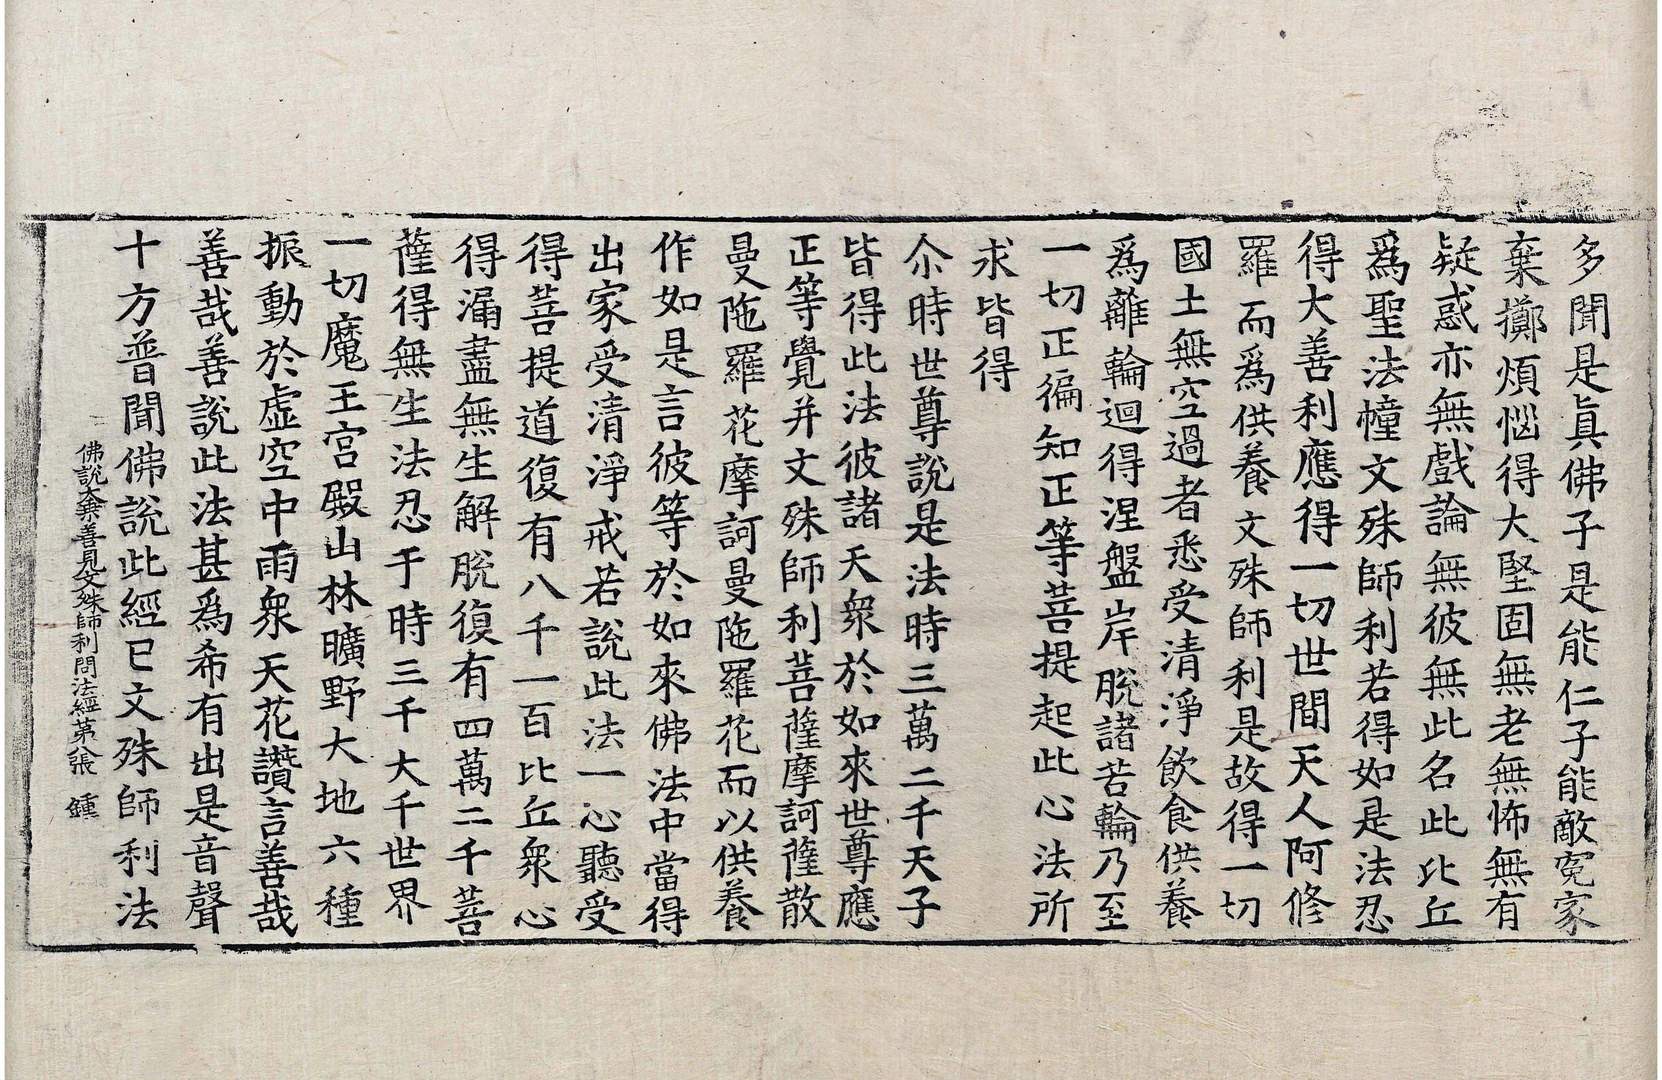 多聞是真佛子是能仁子能敵寃家
棄擲煩惱得大堅固無老無怖無有
疑惑亦無戲論無彼無此名此比丘
爲聖法幢文殊師利若得如是法忍
得大善利應得一切世間天人阿修
羅而爲供養文殊師利是故得一切
國土無空過者悉受清淨飲食供養
爲離輪迴得涅盤岸脫諸苦輪乃至
一切正徧知正等菩提起此心法所
求皆得
尒時世尊說是法時三萬二千天子
皆得此法彼諸天衆於如來世尊應
正等覺并文殊師利菩薩摩訶薩散
曼陁羅花摩訶曼陁羅花而以供養
作如是言彼等於如來佛法中當得
出家受清淨戒若說此法一心聽受
得菩提道復有八千一百比丘衆心
得漏盡無生解脫復有四萬二千菩
薩得無生法忍于時三千大千世界
一切魔王宮殿山林曠野大地六種
振動於虛空中雨衆天花讚言善哉
善哉善說此法甚爲希有出是音聲
十方普聞佛說此經已文殊師利法
佛說大乘善見文殊師利問法經第張 鍾